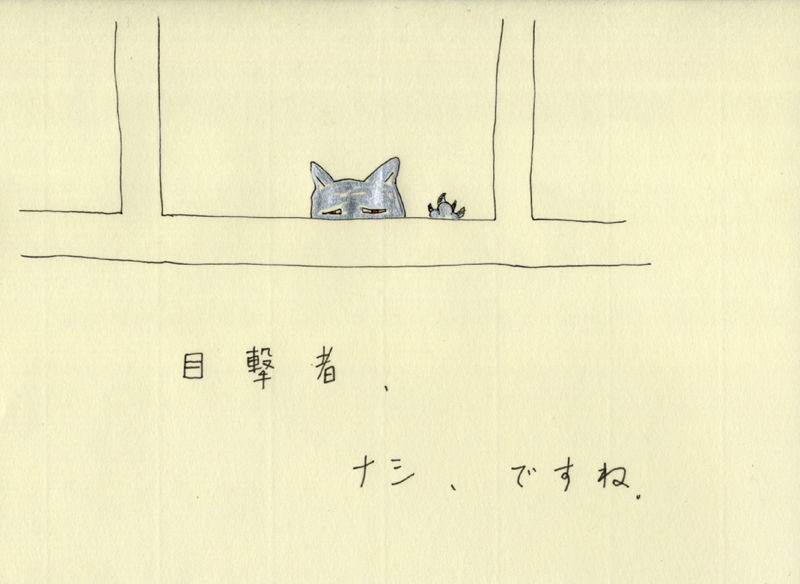 目撃者、
ナシ、ですね.